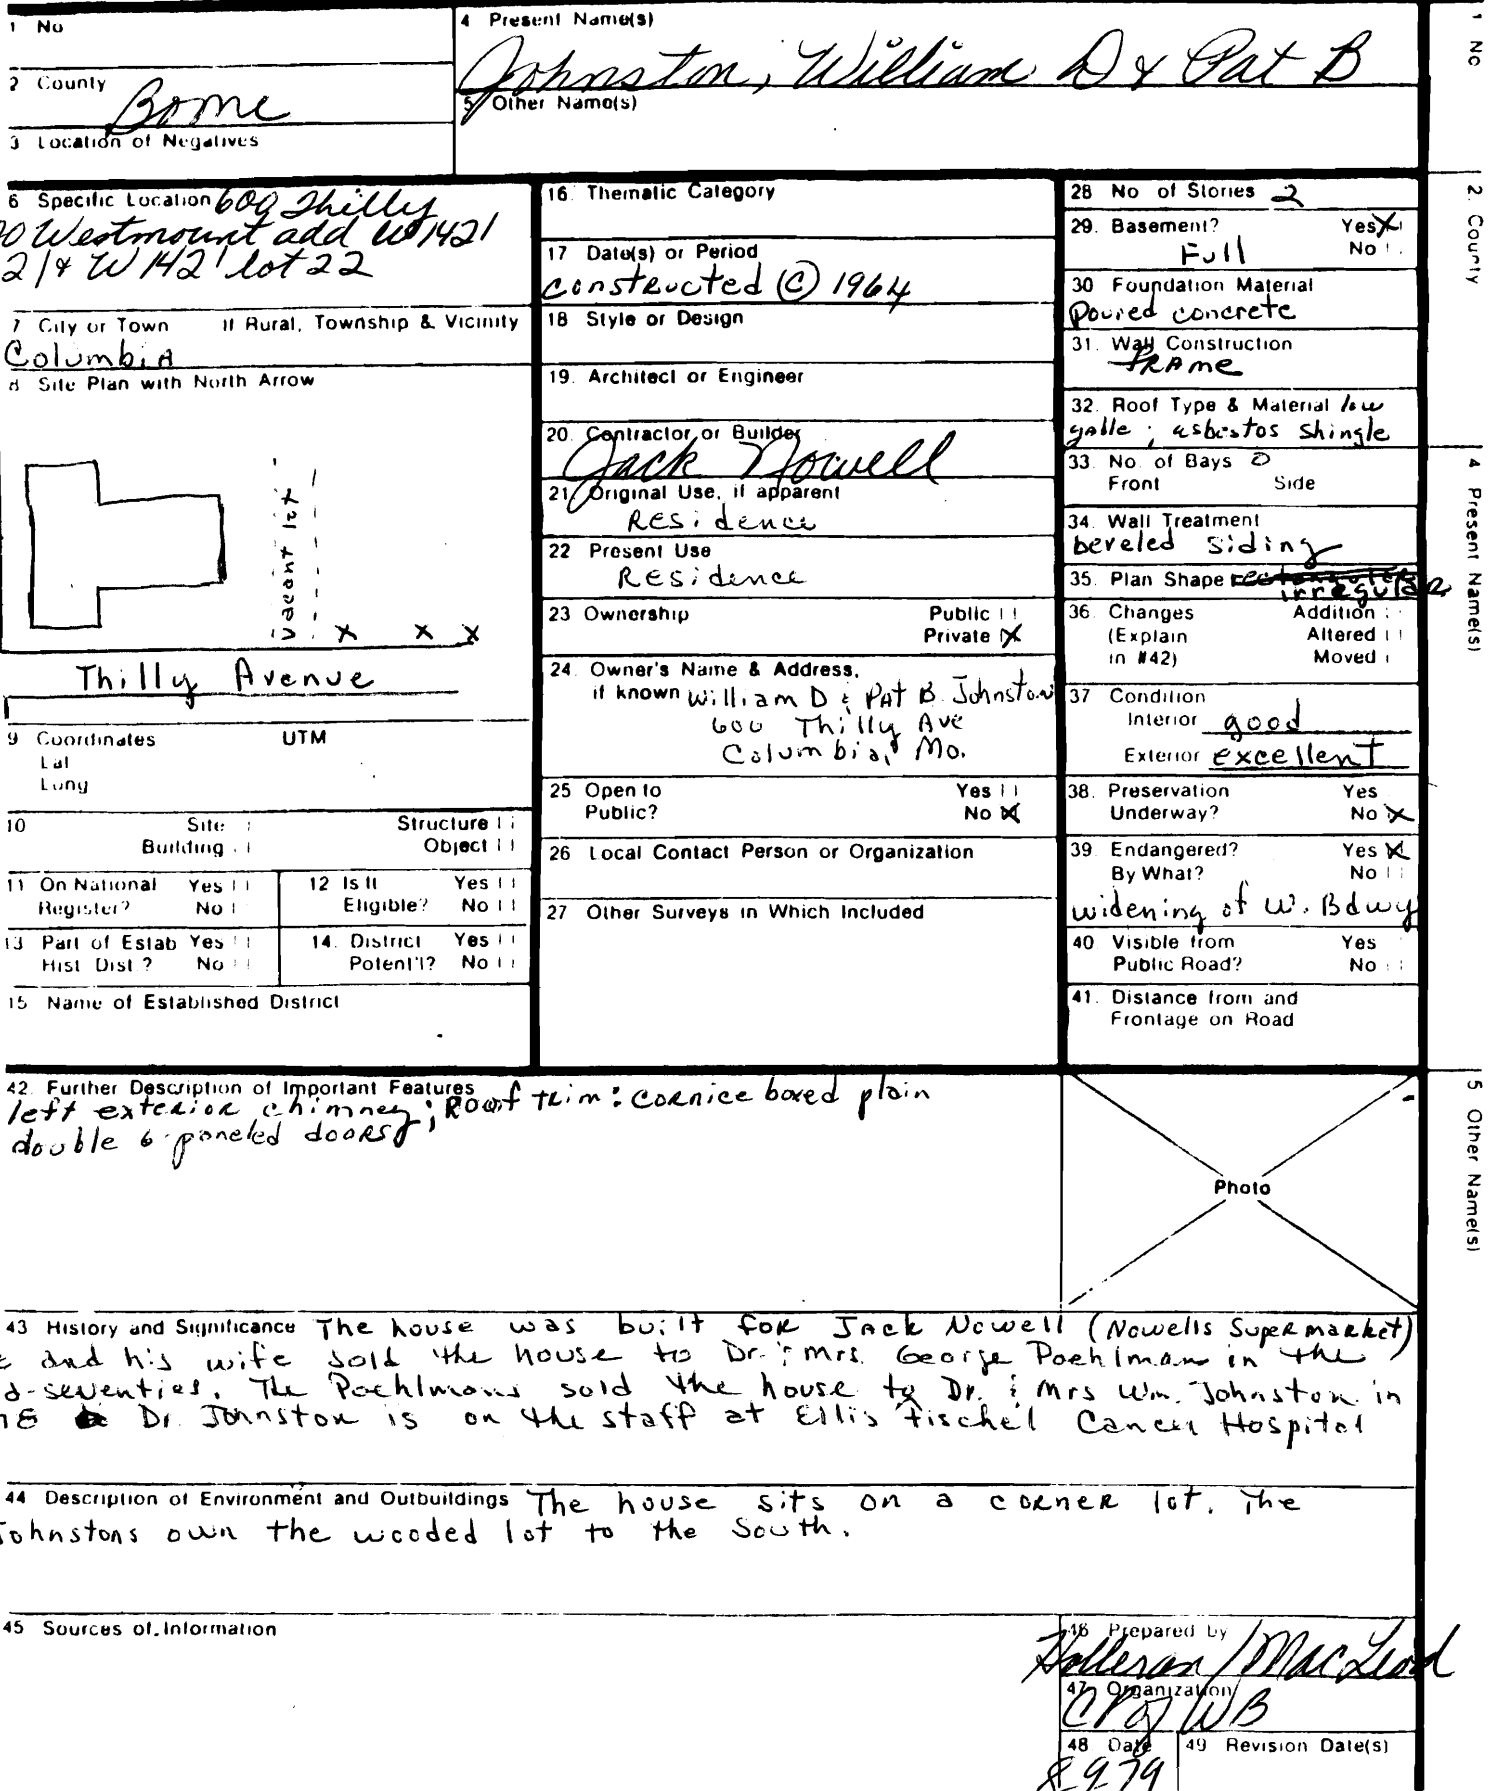 1 No
4 Present Name(s)
Johnston, William D & Pat B
2 County
Boone
5 Other Name(s)
3 Location of Negatives
6 Specific Location 600 Thilly
Westmount add W 142'
21 & W 142' lot 22
7 City or Town If Rural, Township & Vicinity
Columbia
8 Site Plan with North Arrow
vacant lot
x x x
Thilly Avenue
9 Coordinates UTM
Lat
Long
10 Site Structure
Building Object
11 On National Register? Yes No
12 Is It Eligible? Yes No
13 Part of Estab Hist Dist? Yes No
14. District Potent'l? Yes No
15 Name of Established District
16. Thematic Category
17 Date(s) or Period
constructed © 1964
18 Style or Design
19. Architect or Engineer
20. Contractor or Builder
Jack Nowell
21. Original Use, if apparent
Residence
22 Present Use
Residence
23 Ownership Public
Private X
24. Owner's Name & Address,
if known William D & Pat B. Johnston
600 Thilly Ave
Columbia, Mo.
25 Open to Yes
Public? No X
26 Local Contact Person or Organization
27 Other Surveys in Which Included
28 No of Stories 2
29. Basement? Yes X
Full No
30 Foundation Material
Poured concrete
31. Wall Construction
frame
32. Roof Type & Material low
gable; asbestos shingle
33. No. of Bays 0
Front Side
34. Wall Treatment
beveled siding
35. Plan Shape rectangular
irregular
36. Changes Addition
(Explain Altered
in #42) Moved
37 Condition
Interior good
Exterior excellent
38. Preservation Yes
Underway? No X
39. Endangered? Yes X
By What? No
widening of W. Bdwy
40 Visible from Yes
Public Road? No
41. Distance from and
Frontage on Road
42. Further Description of Important Features
left exterior chimney; Roof trim: cornice boxed plain
double 6 paneled doors;
Photo
43 History and Significance The house was built for Jack Nowell (Nowells Supermarket)
and his wife sold the house to Dr. & Mrs. George Poehlman in the
d-seventies. The Poehlmans sold the house to Dr. & Mrs Wm. Johnston in
78 Dr. Johnston is on the staff at Ellis Fischel Cancer Hospital
44 Description of Environment and Outbuildings The house sits on a corner lot. The
Johnstons own the wooded lot to the South.
45 Sources of Information
46 Prepared by
Holleran/MacLeod
47 Organization
48 Date
8.9.79
49 Revision Date(s)
1 No
2. County
4 Present Name(s)
5 Other Name(s)